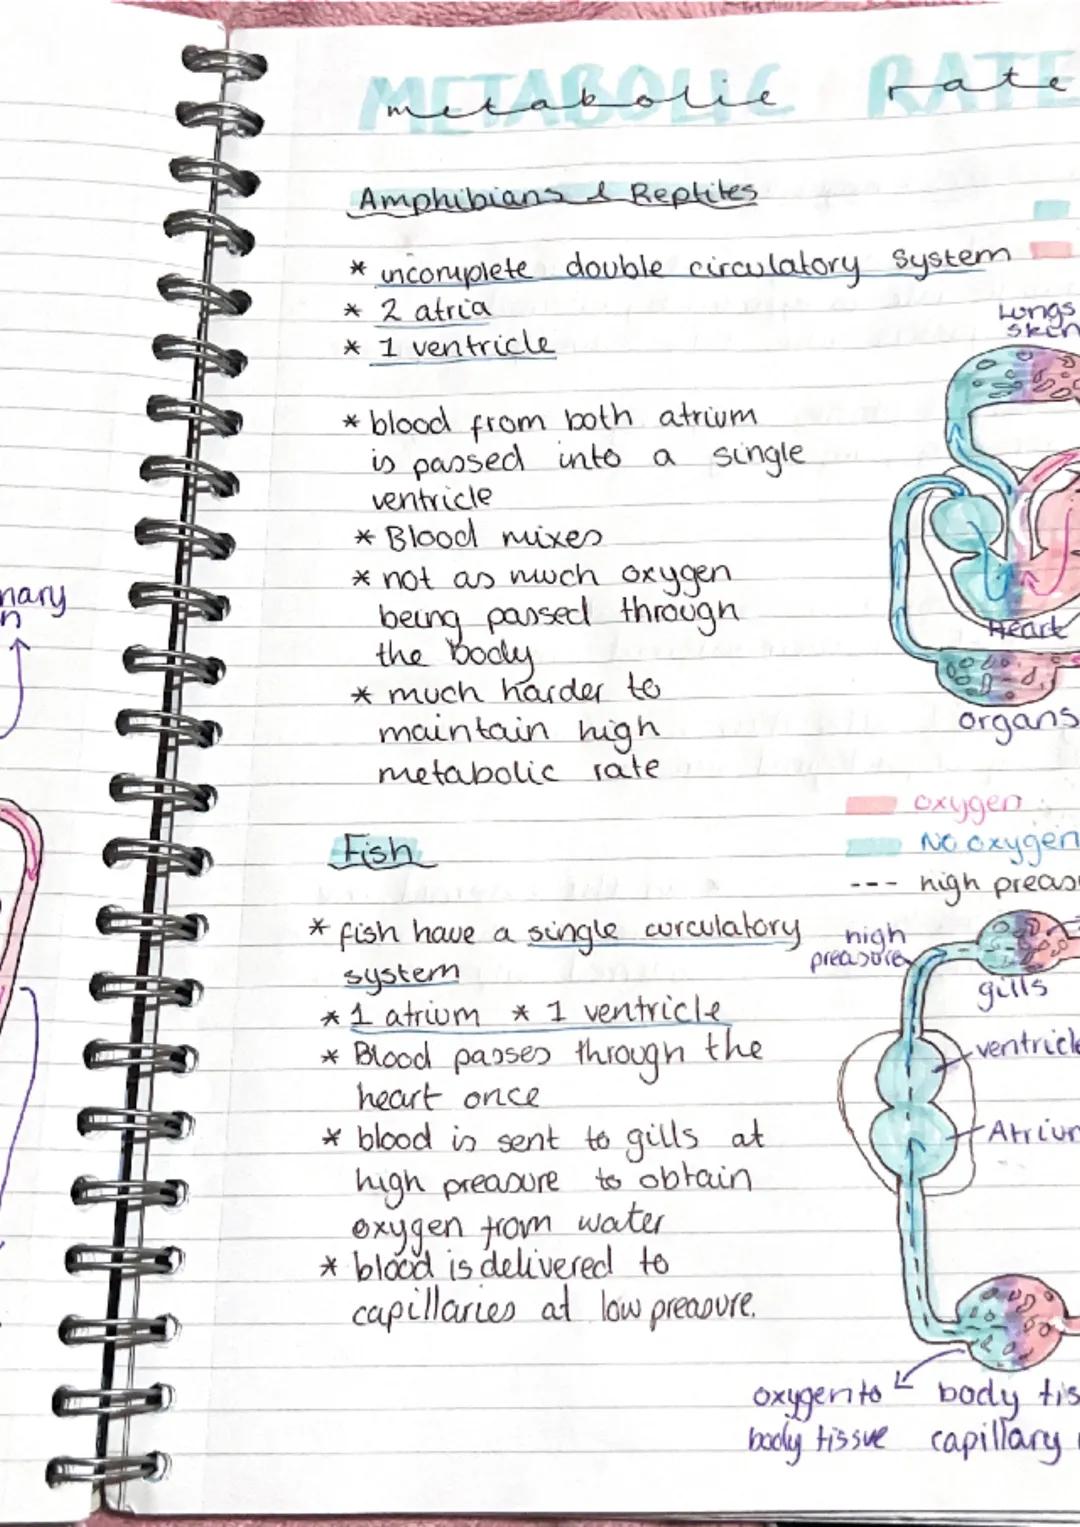 METABOLIC RATE
metabolic rate
Amphibians & Reptiles
* incomplete double circulatory system
* 2 atria
* 1 ventricle
Lungs
skin
* blood from both atrium
is passed into a single
ventricle
* Blood mixes
* not as much oxygen
being passed through
the body
* much harder to
maintain high
metabolic rate
Heart
organs
nary
n
oxygen
No oxygen
--- high preasu
Fish
* fish have a single curculatory
system
* 1 atrium * 1 ventricle
* Blood passes through the
heart once
* blood is sent to gills at
high preasure to obtain
oxygen from water
* blood is delivered to
capillaries at low preasure.
high
preasure
gills
ventricle
Atrium
oxygen to
body tissue
body tis
capillary